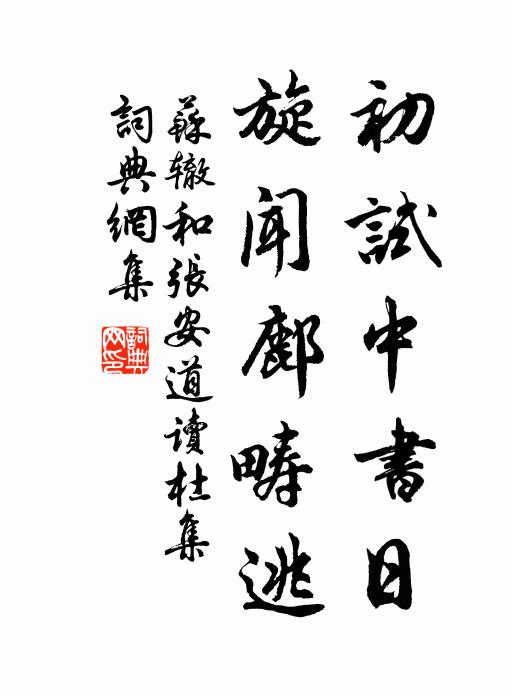 初試中書日
旋聞鄜畤逃
蘇轍和張安道讀杜集
詞典網集
詞典
网印